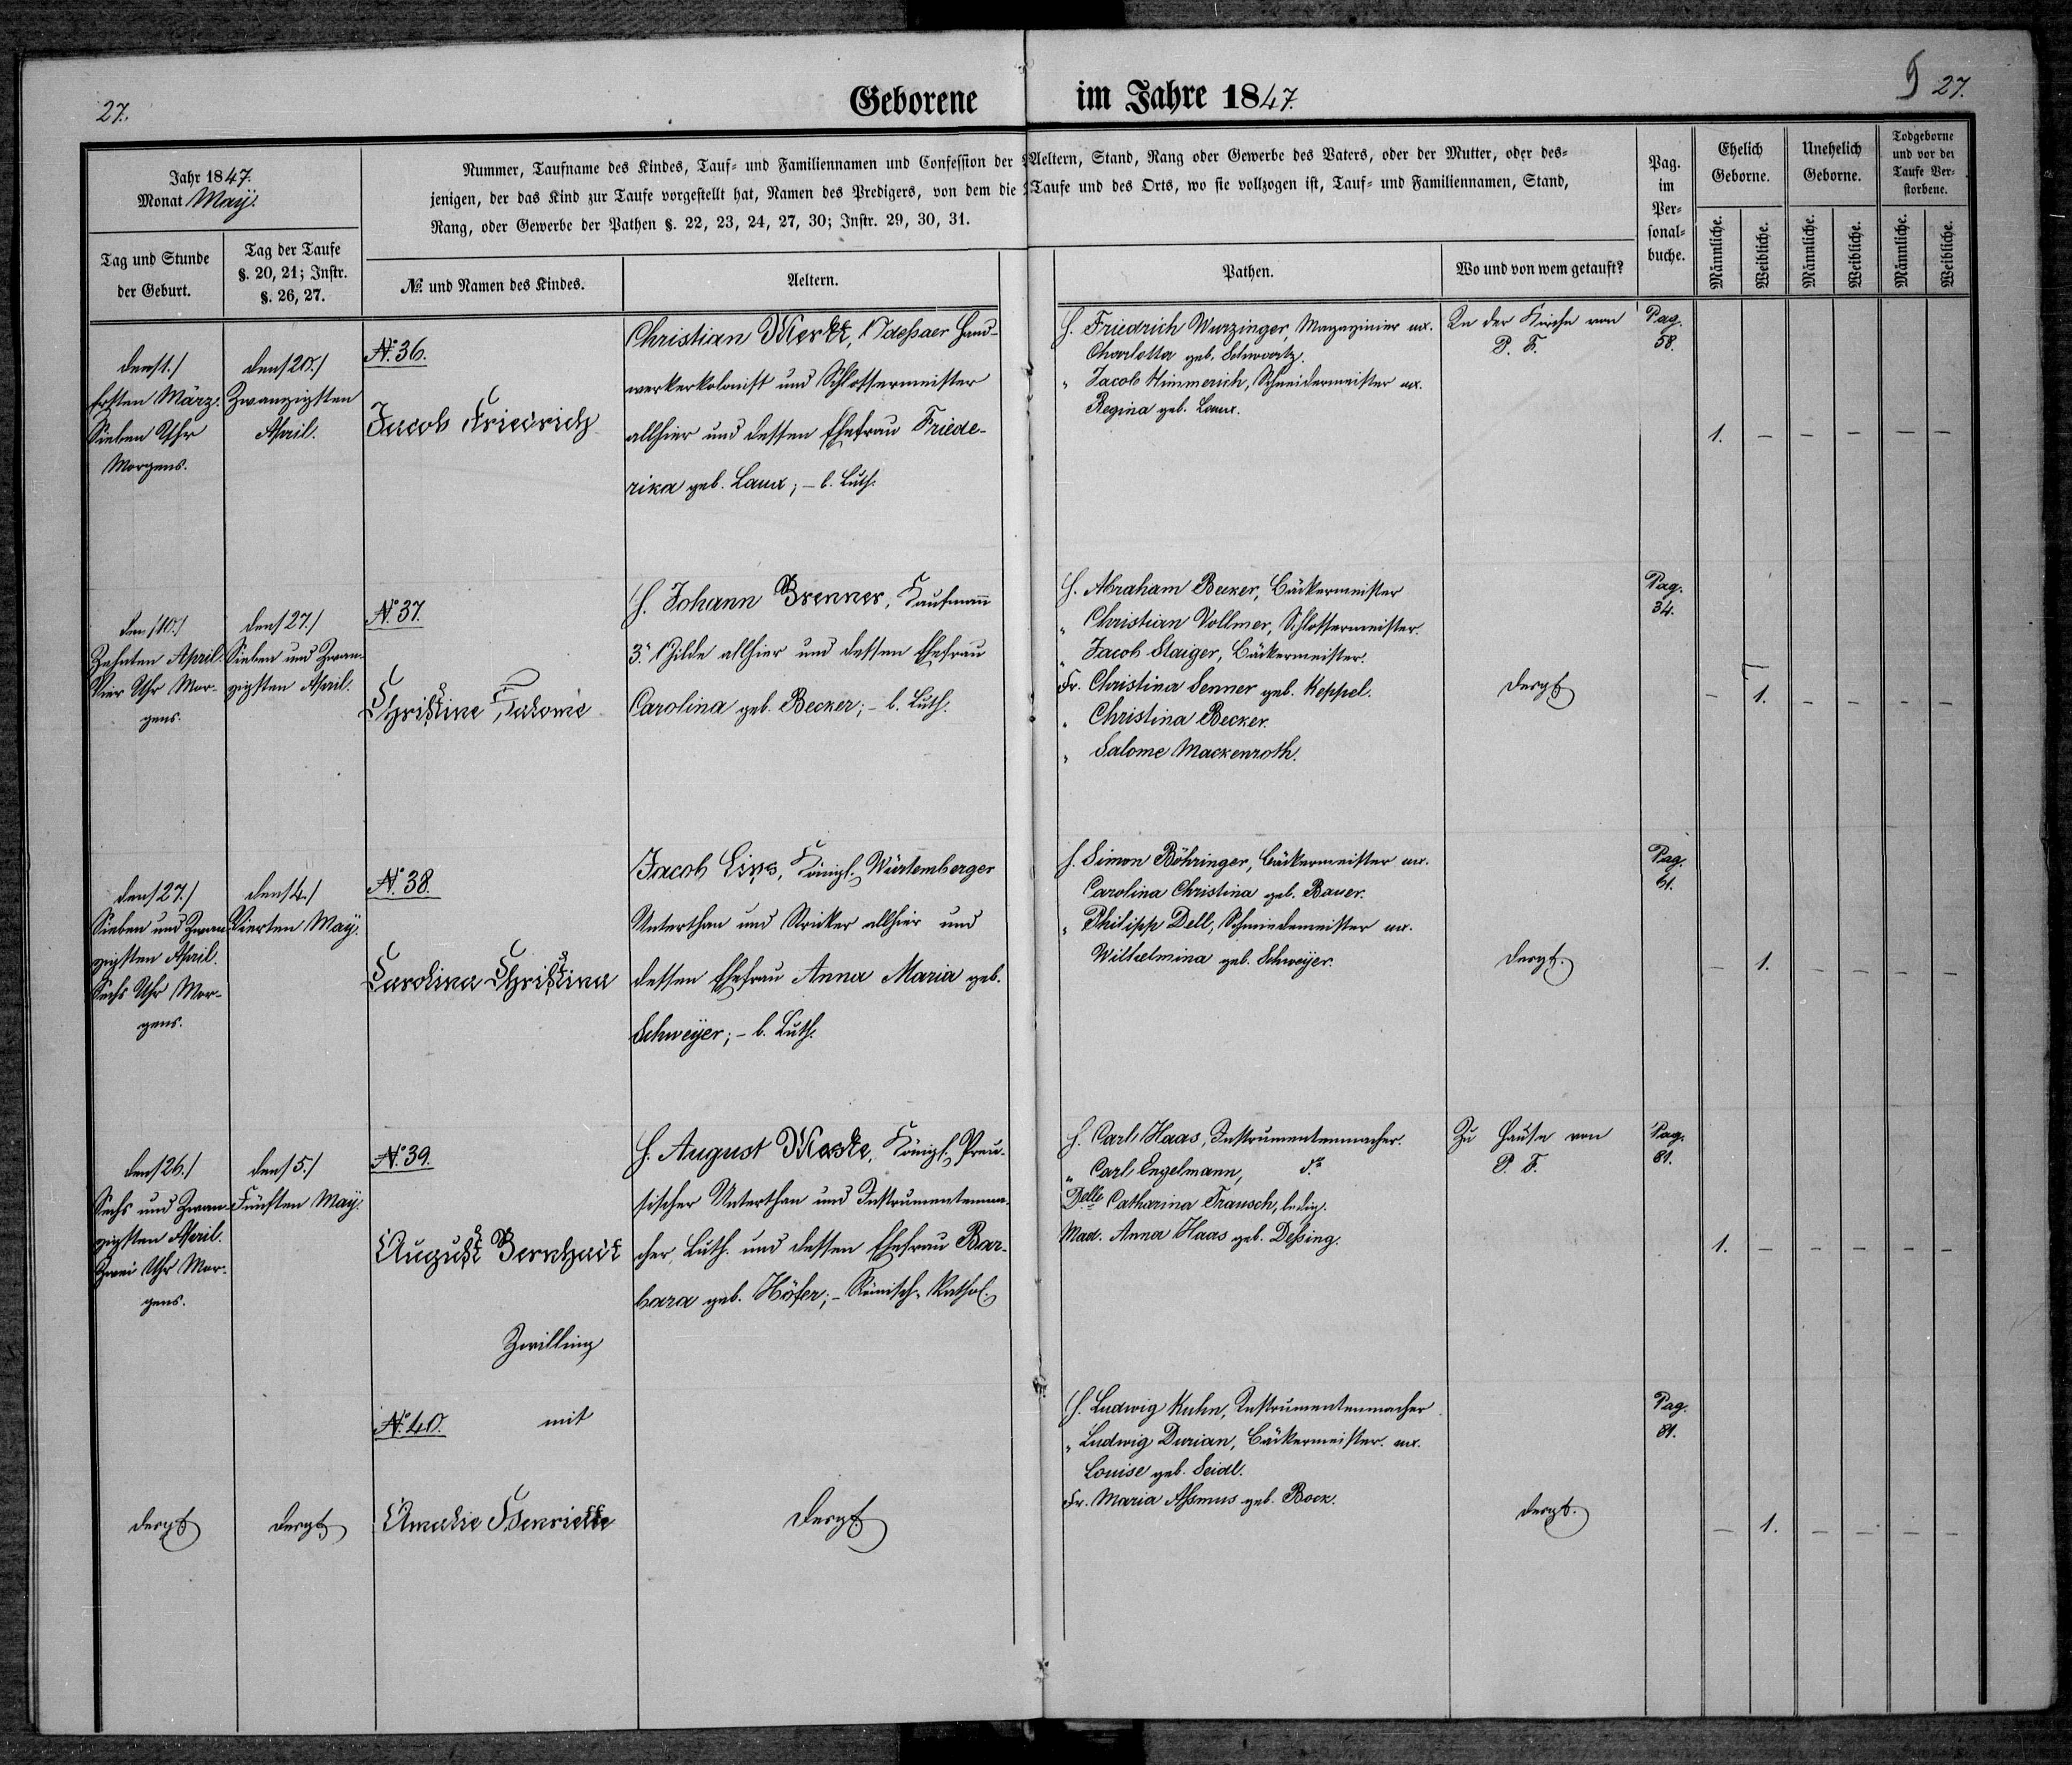 27.
Geborene im Jahre 1847.
27.
Jahr 1847.
Monat May.
Nummer, Taufname des Kindes, Tauf- und Familiennamen und Confession der Aeltern, Stand, Rang oder Gewerbe des Vaters, oder der Mutter, oder des-
jenigen, der das Kind zur Taufe vorgestellt hat, Namen des Predigers, von dem die Taufe und des Orts, wo sie vollzogen ist, Tauf- und Familiennamen, Stand,
Rang, oder Gewerbe der Pathen §. 22, 23, 24, 27, 30; Instr. 29, 30, 31.
Pag.
im
Per-
sonal-
buche.
Ehelich
Geborne.
Unehelich
Geborne.
Todgeborne
und vor der
Taufe Ver-
storbene.
Tag und Stunde
der Geburt.
Tag der Taufe
§. 20, 21; Instr.
§. 26, 27.
No. und Namen des Kindes.
Aeltern.
Pathen.
Wo und von wem getauft?
Männliche.
Weibliche.
Männliche.
Weibliche.
Männliche.
Weibliche.
den /1./
Ersten März.
Sieben Uhr
Morgens.
den /20./
Zwanzigsten
April.
No. 36.
Jacob Friedrich
Christian Merkt, Odessaer Hand-
werkerkolonist und Schlossermeister
allhier und dessen Ehefrau Friede-
rika geb. Laux; – b. Luth.
H. Friedrich Wurzinger, Magazinier ux.
Charlotta geb. Schwartz.
" Jacob Himmerich, Schneidermeister ux.
Regina geb. Laux.
In der Kirche von
P. F.
Pag.
58.
1. – – – – –
den /10./
Zehnten April.
Vier Uhr Mor-
gens.
den /27./
Sieben und Zwan-
zigsten April.
No. 37.
Christine Salome
H. Johann Brenner, Kaufmann
3. Gilde allhier und dessen Ehefrau
Carolina geb. Becker; – b. Luth.
H. Abraham Becker, Bäckermeister
" Christian Vollmer, Schlossermeister.
" Jacob Staiger, Bäckermeister.
Fr. Christina Senner geb. Keppel.
" Christina Becker.
" Salome Mackenroth.
dergl.
Pag.
34.
– 1. – – – –
den /27./
Sieben und Zwan-
zigsten April.
Sechs Uhr Mor-
gens.
den /4./
Vierten May.
No. 38.
Carolina Christina
Jacob Lips, Königl. Würtemberger
Unterthan und Stricker allhier und
dessen Ehefrau Anna Maria geb.
Schweyer; – b. Luth.
H. Simon Böhringer, Bäckermeister ux.
Carolina Christina geb. Bauer.
" Philipp Dell, Schmiedemeister ux.
Wilhelmina geb. Schweyer.
dergl.
Pag.
61.
– 1. – – – –
den /26./
Sechs und Zwan-
zigsten April.
Zwei Uhr Mor-
gens.
den /5./
Fünften May.
No. 39.
August Bernhard
Zwilling
H. August Maske, Königl. Preu-
sischer Unterthan und Instrumentenma-
cher, Luth. und dessen Ehefrau Bar-
bara geb. Höfer; – Römisch-Kathol.
H. Carl Haas, Instrumentenmacher.
" Carl Engelmann, do
Delle Catharina Trausch, ledig.
Mad. Anna Haas geb. Deßing.
Zu Hause von
P. F.
Pag.
81.
1. – – – – –
mit
No. 40.
dergl.
dergl.
Amalie Henriette
dergl.
H. Ludwig Kuhn, Instrumentenmacher
" Ludwig Durian, Bäckermeister. ux.
Louise geb. Seidl.
Fr. Maria Aßmus geb. Bock.
dergl.
Pag.
81.
– 1. – – – –